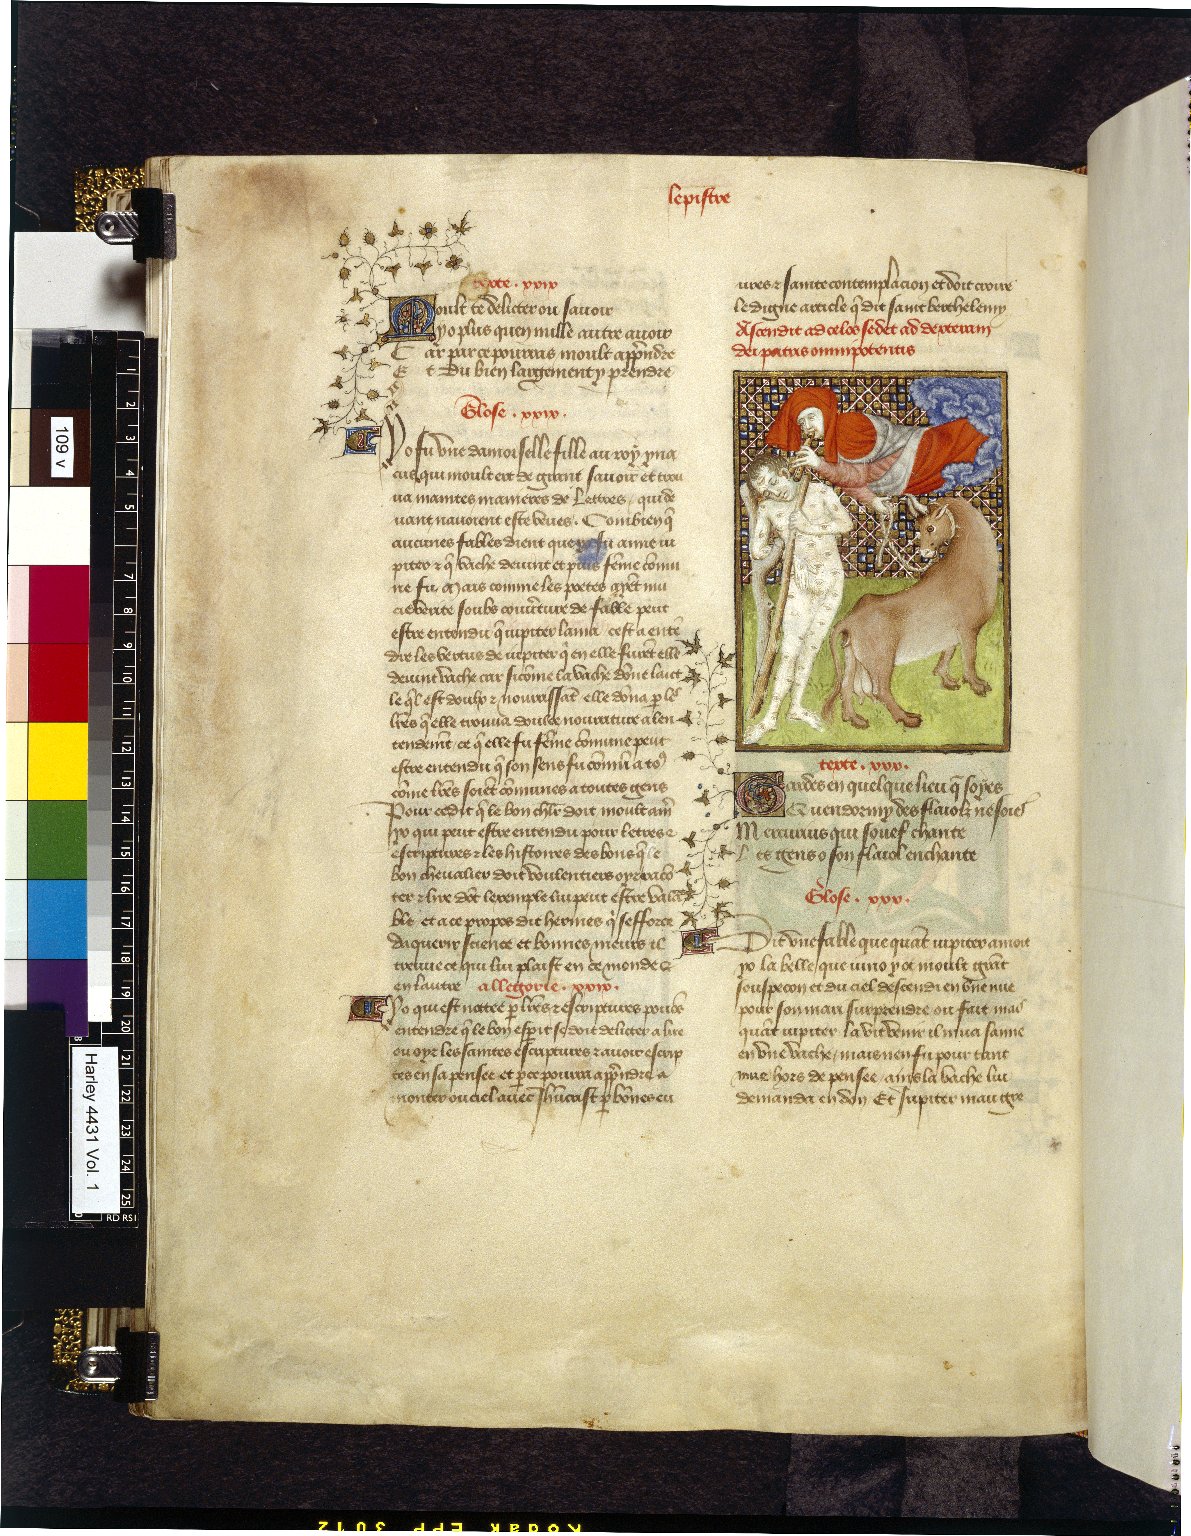 lepistre
texte . xxix
Moult te delicter ou savoir
yo plus quen mille autre avoir
Car par ce pourras moult appndre
Et du bien largement y prendre
Glose . xxix.
Yo fu une damoiselle fille au roy yna
cus qui moult ert de grant savoir et trou
va maintes manieres de lettres / qui de
vant navoient este veues. Combien q̄
aucunes fables dient que yo fu amie iu
piter & q̄ vache devint et puis feme comu
ne fu / Mais comme les poetes ayēt mu
cie verite soubs couv̄ture de fable peut
estre entendu q̄ iupiter lama cest a entē
dre les vertus de iupiter q̄ en elle furēt elle
devint vache car sicōme la vache dōne lait
le q̄l est doulx & nourrissāt elle dōna p les
lr̄es q̄ elle trouva doulce nourriture a len
tendemt̄ ce q̄ elle fu fēme cōmune peut
estre entendu q̄ son sens fu cōmū a to9
cōme lr̄es soiēt cōmunes a toutes gens
Pour ce dit q̄ le bon chlr̄ doit moult am̄
yo qui peut estre entendu pour letres &
escriptures & les histoires des bons q̄ le
bon chevalier doit voulentiers oyr racō
ter & lire dōt lexemple lui peut estre vaila
ble et a ce propos dit hermes q̄ sefforce
daquerir science et bonnes meurs il
treuve ce qui lui plaist en ce monde &
en lautre allegorie . xxix.
Yo qui est nottee p lr̄es & escriptures pouōs
entendre q̄ le bon esprit se doit deliter a lire
ou oyr les saintes escriptures & avoir escrip
tes en sa pensee et p ce pourra appn̄dre a
monter ou ciel avec ihūcrist p bōnes eu
vres & sainte contemplacion et doit croire
le digne article q̄ dit saint berthelemy
Ascendit ad celos sedet ad dexteram
dei patris omnipotentis
texte . xxx.
Gardes en quelque lieu q̄ soyes
Quendormy des flaiolz ne soies
Mercurius qui souef chante
Les gens o son flaiol enchante
Glose . xxx.
Dit une fable que quāt iupiter amoit
yo la belle / que iuno y ot moult grāt
souspecon et du ciel descendi en une nue
pour son mari surprendre ou fait mais
quāt iupiter la vit venir il mua samie
en une vache / mais nen fu pour tant
mue hors de pensee / ains la vache lui
demanda en don Et Jupiter maugre
109 v
Harley 4431 Vol. 1
1
2
3
4
5
7
8
9
10
11
12
13
14
15
16
17
18
19
20
21
22
23
24
25
Kodak EPP 3012